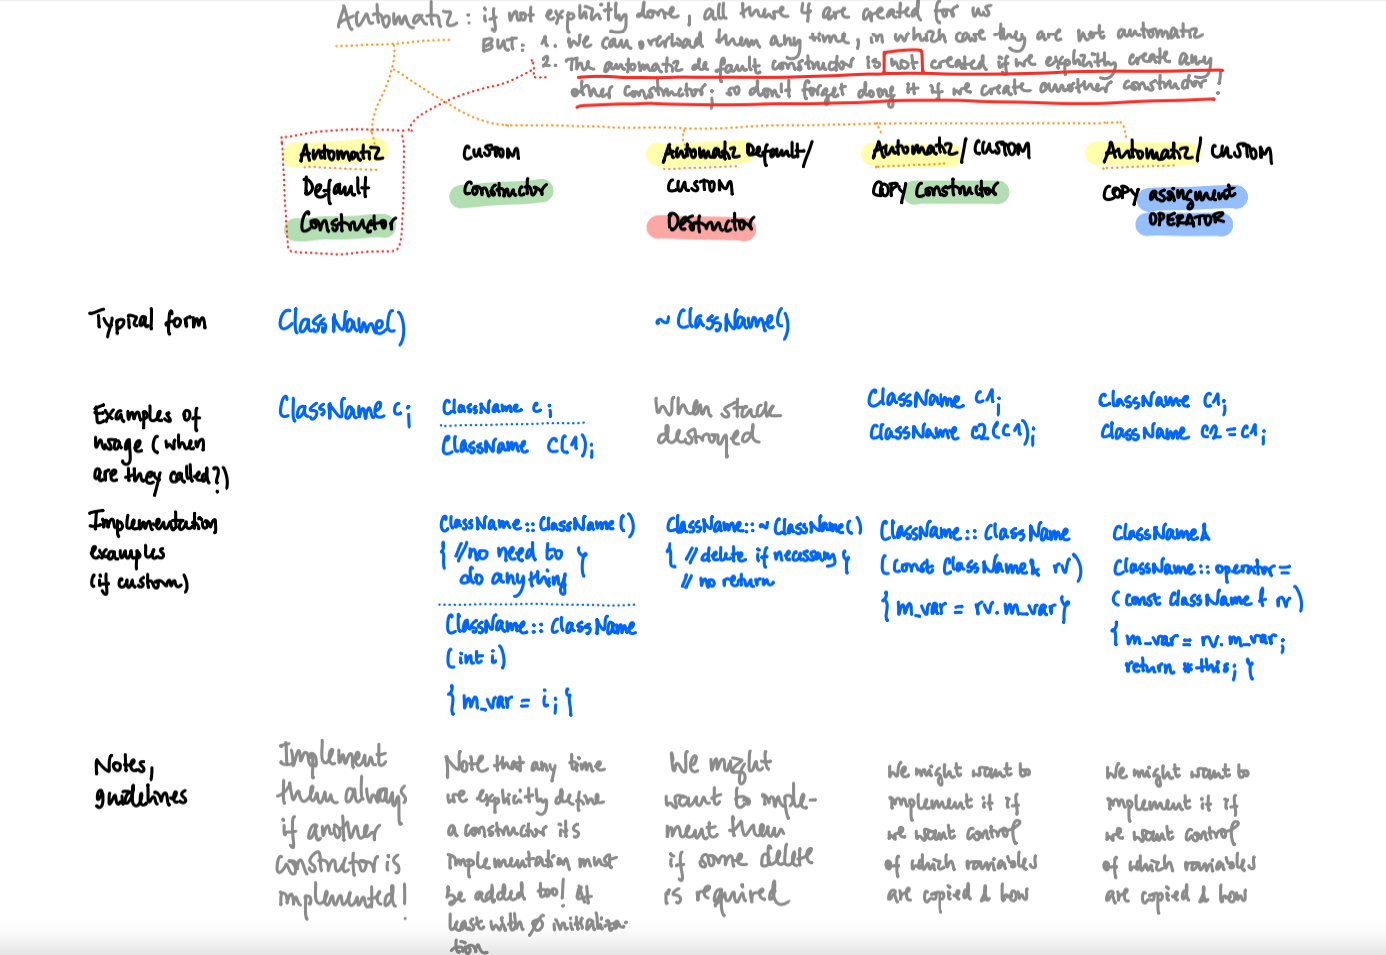 Automatic: if not explicitly done, all these 4 are created for us
BUT: 1. We can overload them any time, in which case they are not automatic
2. The automatic default constructor is not created if we explicitly create any
other constructor; so don't forget doing it if we create another constructor!
Automatic
Default
Constructor
CUSTOM
Constructor
Automatic Default/
CUSTOM
Destructor
Automatic/CUSTOM
COPY Constructor
Automatic/CUSTOM
COPY assingment
OPERATOR
Typical form
ClassName()
~ClassName()
Examples of
usage (when
are they called?)
ClassName c;
ClassName c;
ClassName c(1);
When stack
destroyed
ClassName c1;
ClassName c2(c1);
ClassName c1;
ClassName c2=c1;
Implementation
examples
(if custom)
ClassName::ClassName()
{ //no need to }
do anything
ClassName::ClassName
(int i)
{ m_var = i; }
ClassName::~ClassName()
{ // delete if necessary }
// no return
ClassName::ClassName
(const ClassName& rv)
{ m_var = rv.m_var }
ClassName&
ClassName::operator=
(const ClassName & rv)
{ m_var = rv.m_var;
return *this; }
Notes,
guidelines
Implement
them always
if another
constructor is
implemented!
Note that any time
we explicitly define
a constructor its
implementation must
be added too! At
least with ∅ initializa-
tion
We might
want to imple-
ment them
if some delete
is required
We might want to
implement it if
we want control
of which variables
are copied & how
We might want to
implement it if
we want control
of which variables
are copied & how